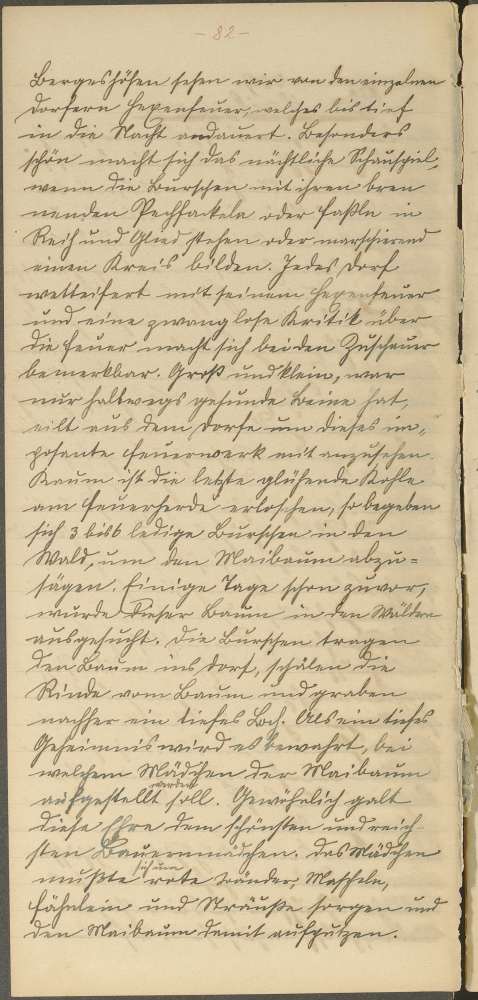 - 82 -
Bergeshöhen sehen wir von den einzelnen
Dörfern Hexenfeuer, welches bis tief
in die Nacht andauert. Besonders
schön macht sich das nächtliche Schauspiel,
wenn die Burschen mit ihren bren
nenden Pechfackeln oder Faßln in
Reih und Glied stehen oder marschierend
einen Kreis bilden. Jedes Dorf
wetteifert mit seinem Hexenfeuer
und eine zwanglose Kritik über
die Feuer macht sich bei den Zuschauer
bemerkbar. Groß und klein, wer
nur halbwegs gesunde Beine hat,
eilt aus dem Dorfe um dieses im„
posante Feuerwerk mit anzusehen.
Kaum ist die letzte glühende Kohle
am Feuerherde erloschen, so begeben
sich 3 bis 6 ledige Burschen in den
Wald, um den Maibaum abzu=
sägen. Einige Tage schon zuvor,
wurde dieser Baum in den Wäldern
ausgesucht. Die Burschen tragen
den Baum ins Dorf, schälen die
Rinde vom Baum und graben
nachher ein tiefes Loch. Als ein tiefes
Geheimnis wird es bewahrt, bei
welchem Mädchen der Maibaum
aufgestellt werden soll. Gewöhnlich galt
diese Ehre dem schönsten und reich
sten Bauernmädchen. Das Mädchen
mußte sich um rote Bänder, Mascheln,
Fähnlein und Sträuße sorgen und
den Maibaum damit aufputzen.